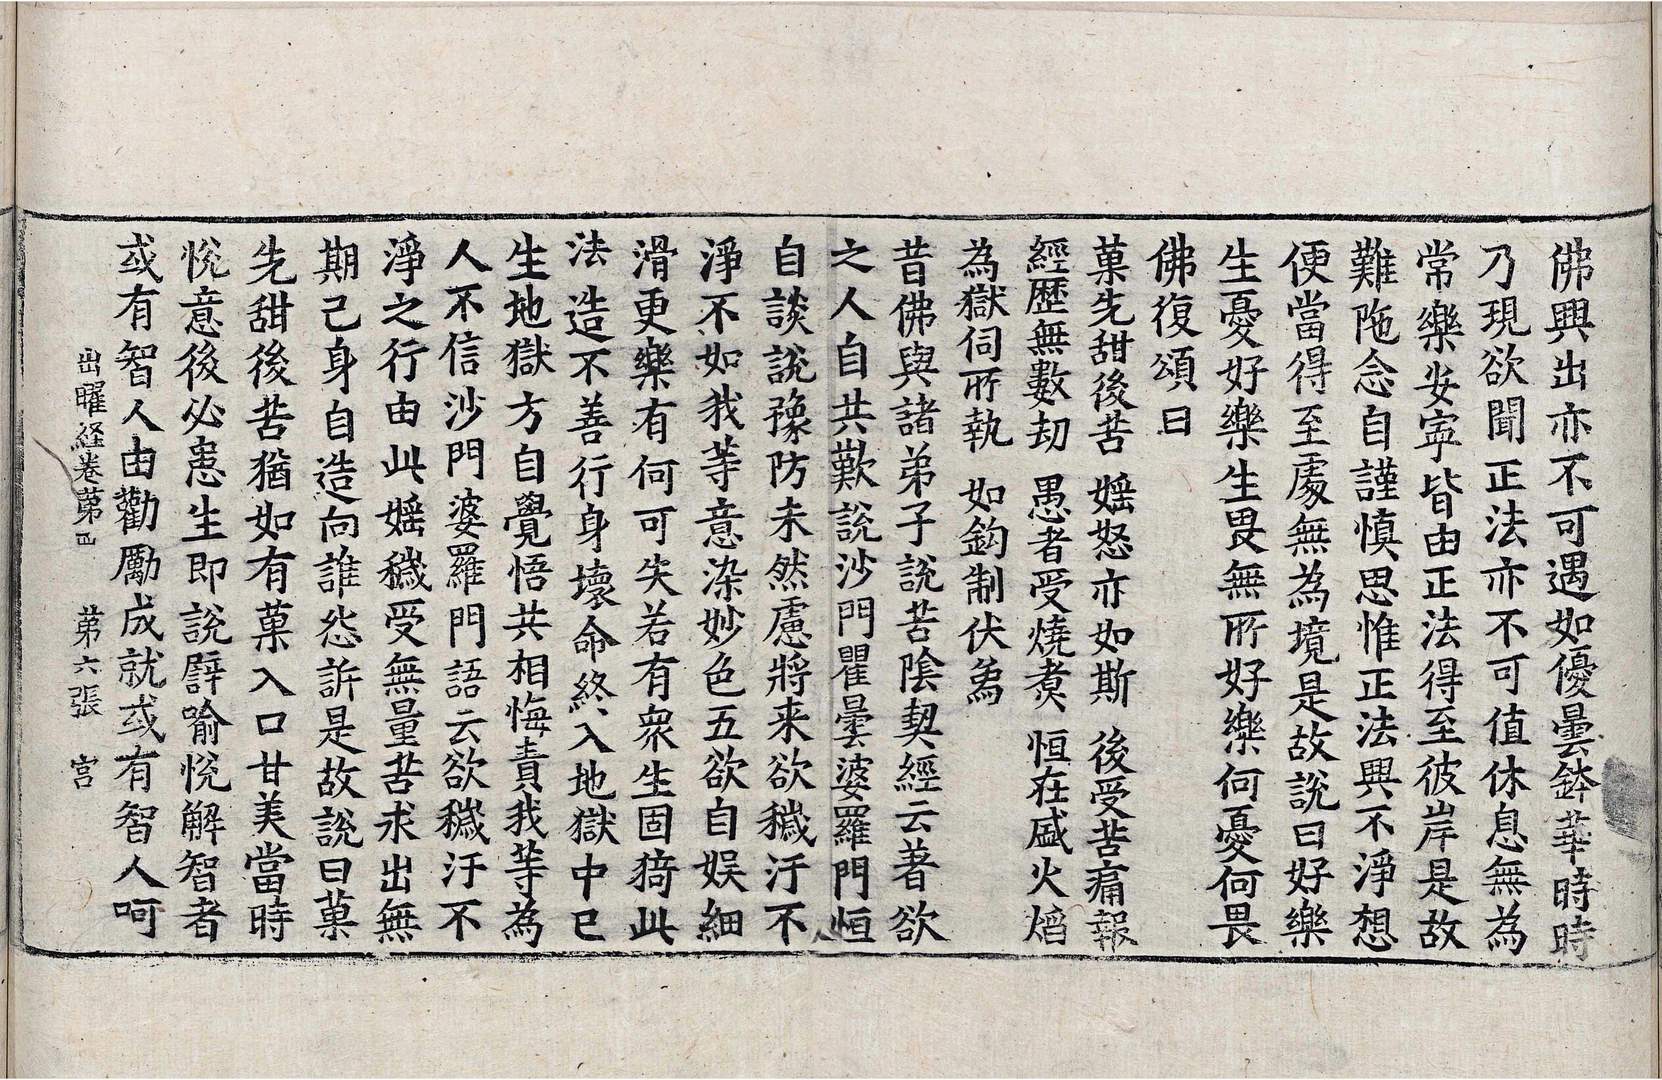 佛興出亦不可遇如優曇鉢華時時
乃現欲聞正法亦不可值休息無為
常樂安寧皆由正法得至彼岸是故
難陁念自謹慎思惟正法興不淨想
便當得至處無為境是故說曰好樂
生憂好樂生畏無所好樂何憂何畏
佛復頌曰
菓先甜後苦 婬怒亦如斯 後受苦痛報
經歷無數劫 愚者受燒煑 恒在盛火熖
為獄伺所執 如鈎制伏為
昔佛與諸弟子說苦陰契經云著欲
之人自共歎說沙門瞿曇婆羅門恒
自談說豫防未然慮將来欲穢汙不
淨不如我等意染妙色五欲自娱細
滑更樂有何可失若有衆生固猗此
法造不善行身壞命終入地獄中已
生地獄方自覺悟共相悔責我等為
人不信沙門婆羅門語云欲穢汙不
淨之行由此婬穢受無量苦求出無
期己身自造向誰怨訴是故說曰菓
先甜後苦猶如有菓入口甘美當時
悅意後必患生即說譬喻悅解智者
或有智人由勸勵成就或有智人呵
出曜経卷苐四 苐六張 宫